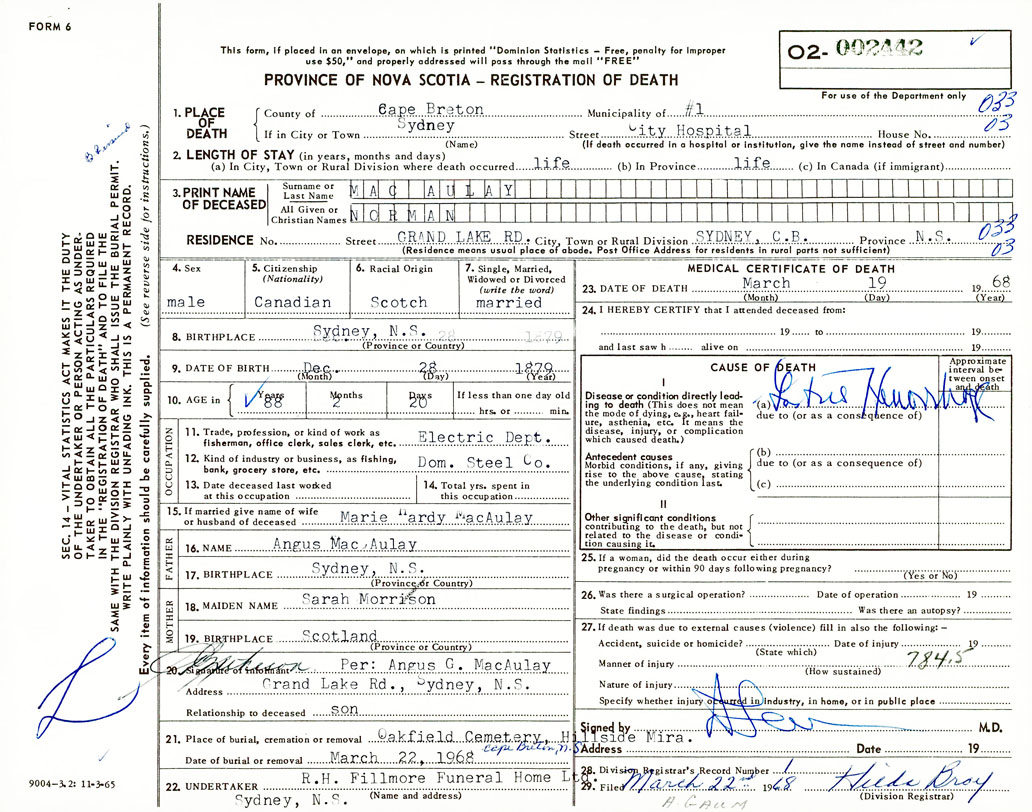 FORM 6
This form, if placed in an envelope, on which is printed "Dominion Statistics – Free, penalty for improper
use $50," and properly addressed will pass through the mail "FREE"
PROVINCE OF NOVA SCOTIA – REGISTRATION OF DEATH
02- 002442
For use of the Department only
033
03
1. PLACE OF DEATH
County of Cape Breton Municipality of #1
If in City or Town Sydney Street City Hospital House No.
(Name) (If death occurred in a hospital or institution, give the name instead of street and number)
2. LENGTH OF STAY (in years, months and days)
(a) In City, Town or Rural Division where death occurred life (b) In Province life (c) In Canada (if immigrant)
3. PRINT NAME OF DECEASED
Surname or Last Name MAC AULAY
All Given or Christian Names NORMAN
RESIDENCE No. Street GRAND LAKE RD. City, Town or Rural Division SYDNEY, C.B. Province N.S.
(Residence means usual place of abode. Post Office Address for residents in rural parts not sufficient)
033
03
4. Sex
male
5. Citizenship
(Nationality)
Canadian
6. Racial Origin
Scotch
7. Single, Married,
Widowed or Divorced
(write the word)
married
8. BIRTHPLACE Sydney, N.S. 28 1879
(Province or Country)
9. DATE OF BIRTH Dec. 28 1879
(Month) (Day) (Year)
10. AGE in
Years Months Days
88 2 20
If less than one day old
hrs. or min.
OCCUPATION
11. Trade, profession, or kind of work as
fisherman, office clerk, sales clerk, etc. Electric Dept.
12. Kind of industry or business, as fishing,
bank, grocery store, etc. Dom. Steel Co.
13. Date deceased last worked
at this occupation
14. Total yrs. spent in
this occupation
15. If married give name of wife
or husband of deceased Marie Hardy MacAulay
FATHER
16. NAME Angus Mac Aulay
17. BIRTHPLACE Sydney, N.S.
(Province or Country)
MOTHER
18. MAIDEN NAME Sarah Morrison
19. BIRTHPLACE Scotland
(Province or Country)
20. Signature of informant Per: Angus G. MacAulay
Address Grand Lake Rd., Sydney, N.S.
Relationship to deceased son
21. Place of burial, cremation or removal Oakfield Cemetery, Hillside Mira.
Cape Breton, N.S.
Date of burial or removal March 22, 1968
22. UNDERTAKER R.H. Fillmore Funeral Home Ltd.
Sydney, N.S. (Name and address)
MEDICAL CERTIFICATE OF DEATH
23. DATE OF DEATH March 19 19 68
(Month) (Day) (Year)
24. I HEREBY CERTIFY that I attended deceased from:
19 to 19
and last saw h alive on 19
CAUSE OF DEATH
Approximate
interval be-
tween onset
and death
I
Disease or condition directly lead-
ing to death (This does not mean
the mode of dying, e.g., heart fail-
ure, asthenia, etc. It means the
disease, injury, or complication
which caused death.)
(a)
due to (or as a consequence of)
Antecedent causes
Morbid conditions, if any, giving
rise to the above cause, stating
the underlying condition last.
(b)
due to (or as a consequence of)
(c)
II
Other significant conditions
contributing to the death, but not
related to the disease or condi-
tion causing it.
25. If a woman, did the death occur either during
pregnancy or within 90 days following pregnancy?
(Yes or No)
26. Was there a surgical operation? Date of operation 19
State findings Was there an autopsy?
27. If death was due to external causes (violence) fill in also the following:–
Accident, suicide or homicide? Date of injury 19
(State which)
784.5
Manner of injury
(How sustained)
Nature of injury
Specify whether injury occurred in Industry, in home, or in public place
Signed by M.D.
Address Date 19
28. Division Registrar's Record Number
29. Filed March 22nd 1968 Hilda Broy
(Division Registrar)
A. GAUM
SEC. 14 – VITAL STATISTICS ACT MAKES IT THE DUTY
OF THE UNDERTAKER OR PERSON ACTING AS UNDER-
TAKER TO OBTAIN ALL THE PARTICULARS REQUIRED
IN THE "REGISTRATION OF DEATH" AND TO FILE THE
SAME WITH THE DIVISION REGISTRAR WHO SHALL ISSUE THE BURIAL PERMIT.
WRITE PLAINLY WITH UNFADING INK. THIS IS A PERMANENT RECORD.
Every item of information should be carefully supplied. (See reverse side for instructions.)
9004–3.2: 11-3-65